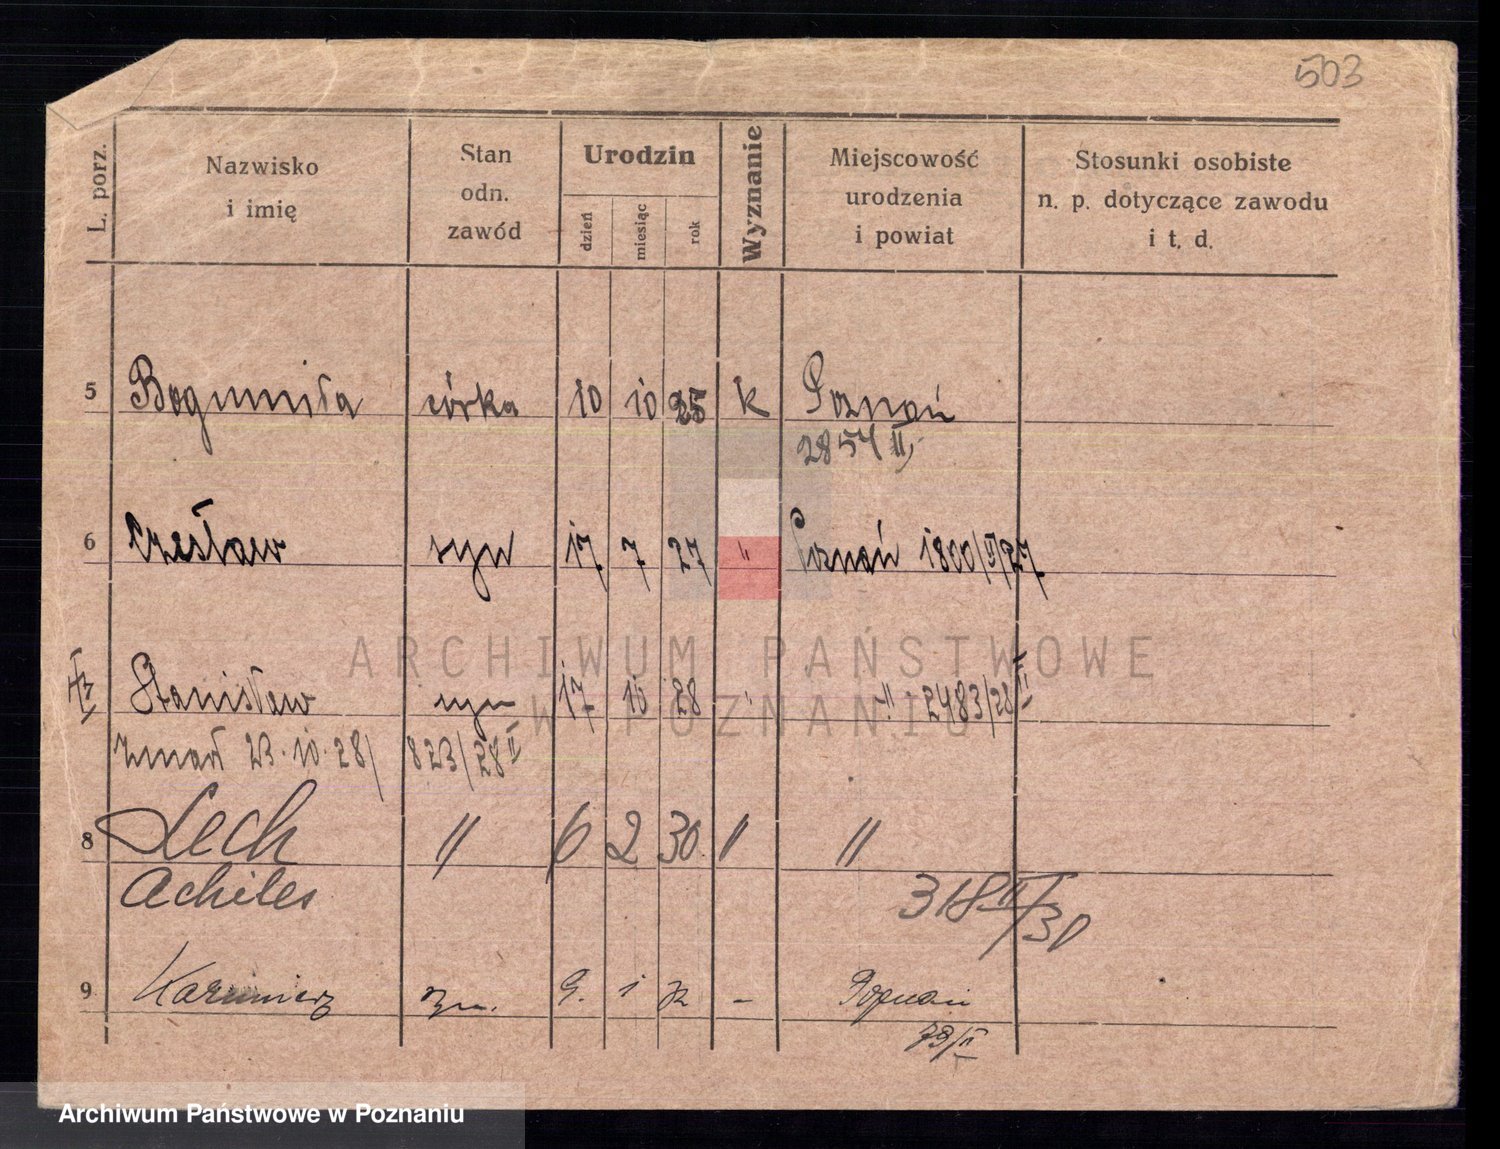 503
L. porz.
Nazwisko
i imię
Stan
odn.
zawód
Urodzin
dzień
miesiąc
rok
Wyznanie
Miejscowość
urodzenia
i powiat
Stosunki osobiste
n. p. dotyczące zawodu
i t. d.
5 Bogumiła córka 10 10 25 k Poznań
2854 II,
6 Czesław syn 17 7 27 " Poznań 1800/II/27
Stanisław syn 17 10 28 " -"- 2483/28 II
zmarł 23.10.28/ 823/28 II
8 Lech " 6 2 30. " "
Achiles
318 II/30
9 Kazimierz syn. 9. 1 32 - Poznań
79/II
ARCHIWUM PAŃSTWOWE
W POZNANIU
Archiwum Państwowe w Poznaniu